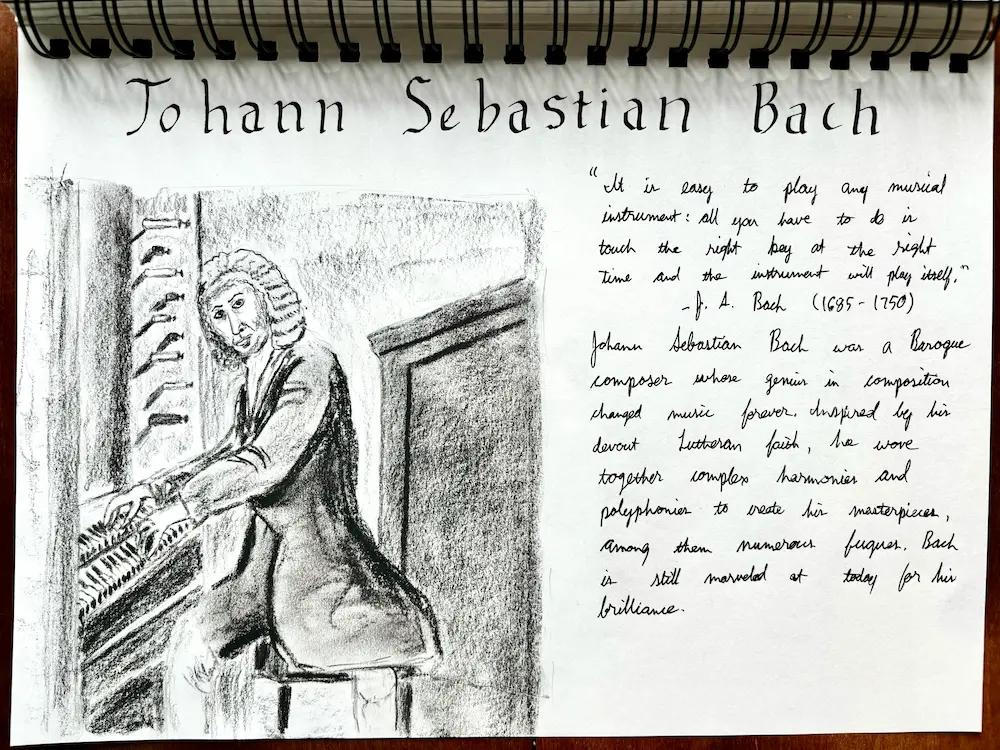 Johann Sebastian Bach
"It is easy to play any musical
instrument: all you have to do is
touch the right key at the right
time and the instrument will play itself."
- J. S. Bach (1685-1750)
Johann Sebastian Bach was a Baroque
composer whose genius in composition
changed music forever. Inspired by his
devout Lutheran faith, he wove
together complex harmonies and
polyphonies to create his masterpieces,
among them numerous fugues. Bach
is still marveled at today for his
brilliance.